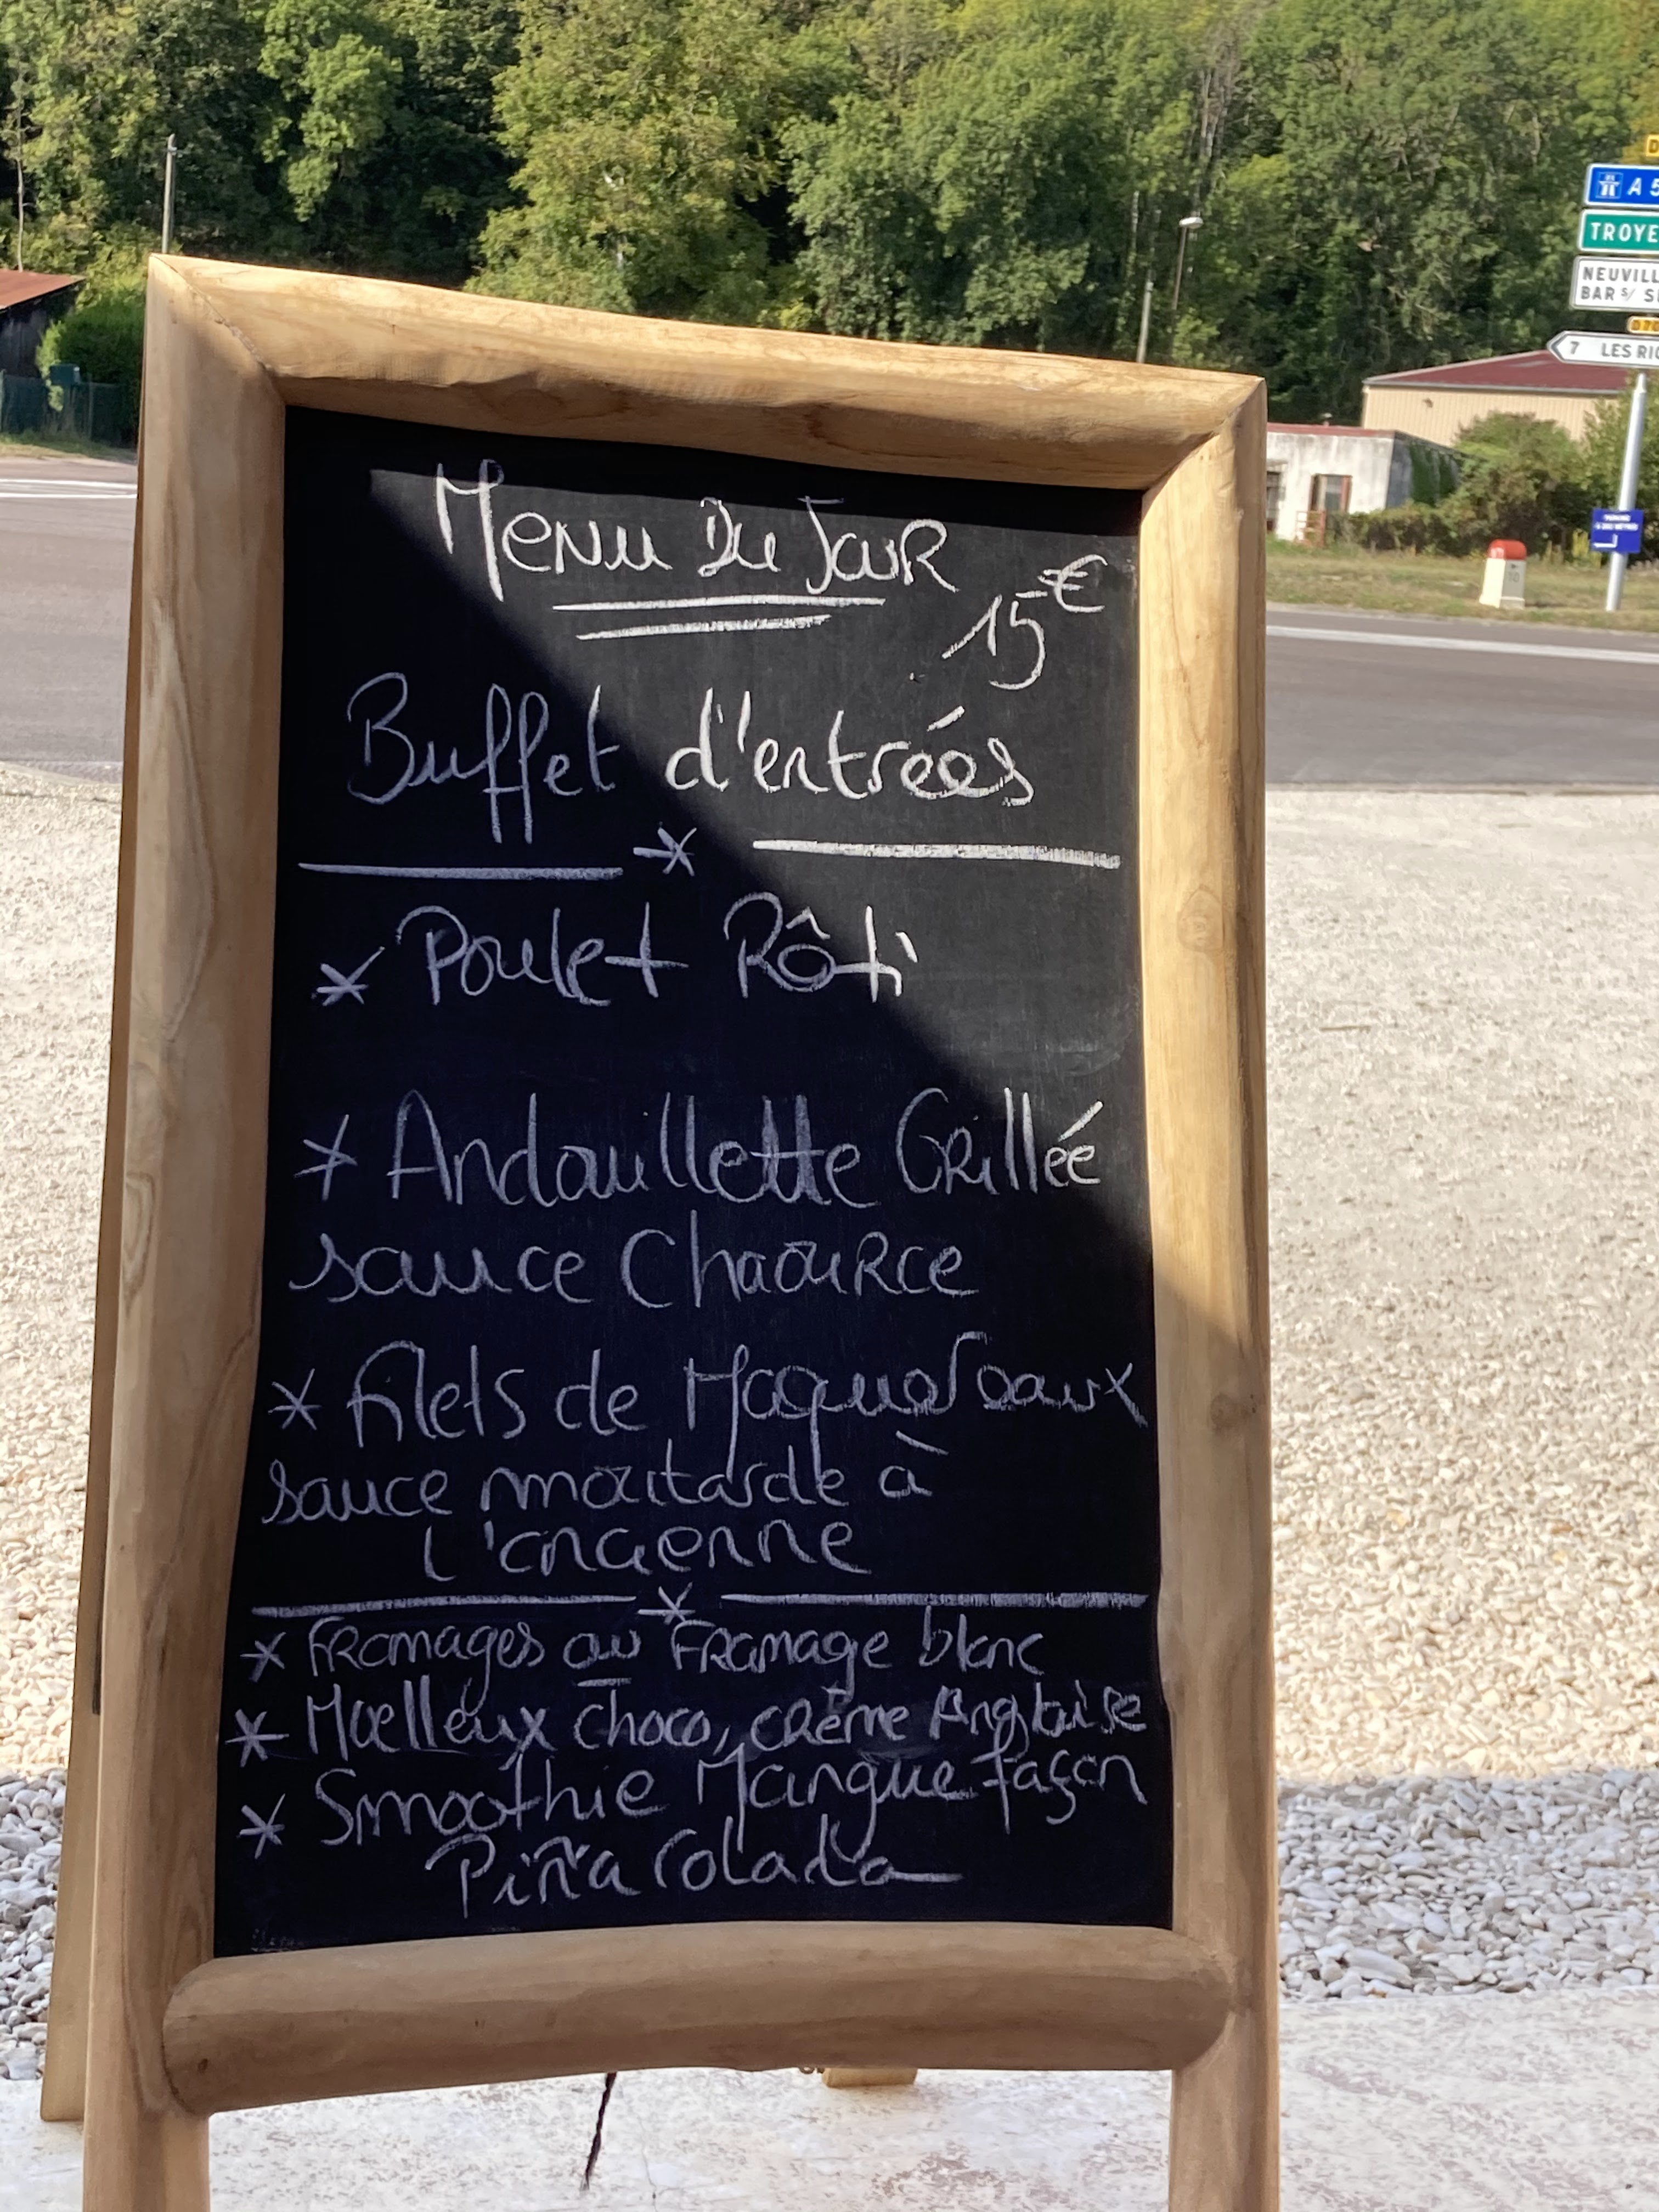 D
A 5
TROYE
NEUVILL
BAR S/ S
D70
7 LES RIC
Menu Du Jour
15€
Buffet d'entrées
* Poulet Rôti
* Andouillette Grillée
sauce Chaource
* filets de Maquereaux
sauce moutarde à
l'ancienne
* Fromages ou Fromage blanc
* Moelleux choco, crème Anglaise
* Smoothie Mangue façon
Piña Colada